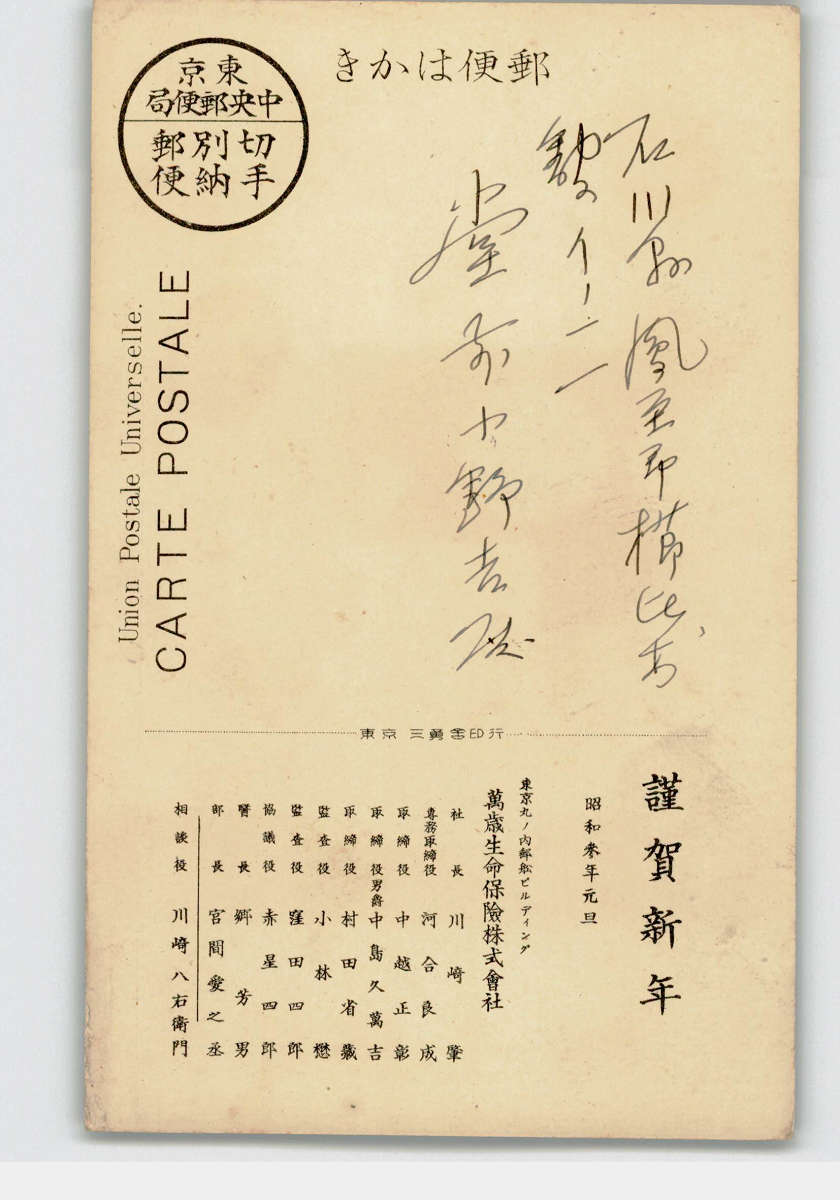 郵便はかき
東京
中央郵便局
切手
別納
郵便
Union Postale Universelle.
CARTE POSTALE
石川縣鳳至郡櫛比村
イ一二
小野吉
東京 三勇舍印行
謹賀新年
昭和參年元旦
東京丸ノ內郵舩ビルディング
萬歲生命保險株式會社
社長 川崎肇
專務取締役 河合良成
取締役 中越正彰
取締役男爵 中島久萬吉
取締役 村田省藏
監査役 小林懋
監査役 窪田四郎
協議役 赤星四郎
醫長 鄉芳男
部長 宮間愛之丞
相談役 川崎八右衛門